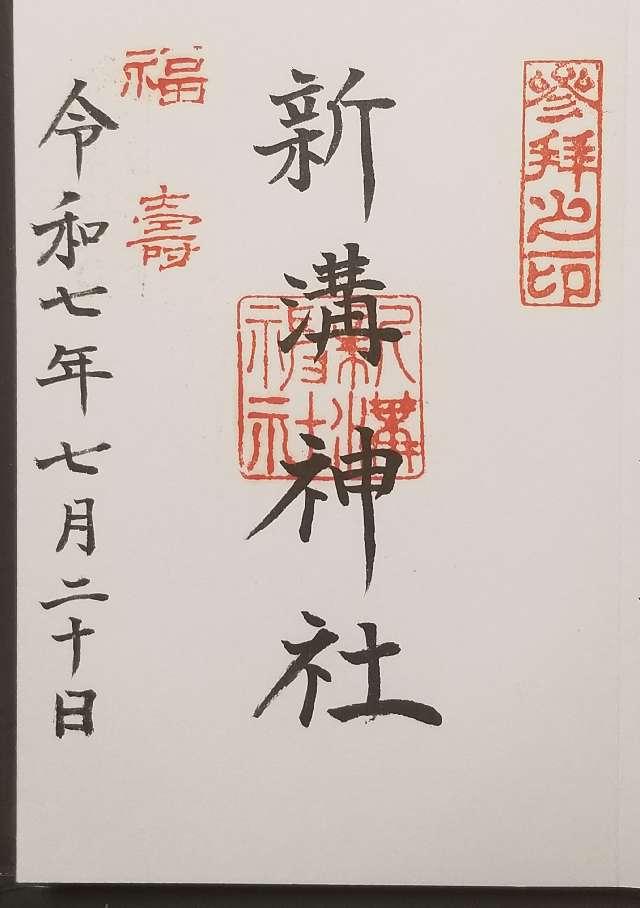 參拜之印
新溝神社
新溝神社
福壽
令和七年七月二十日